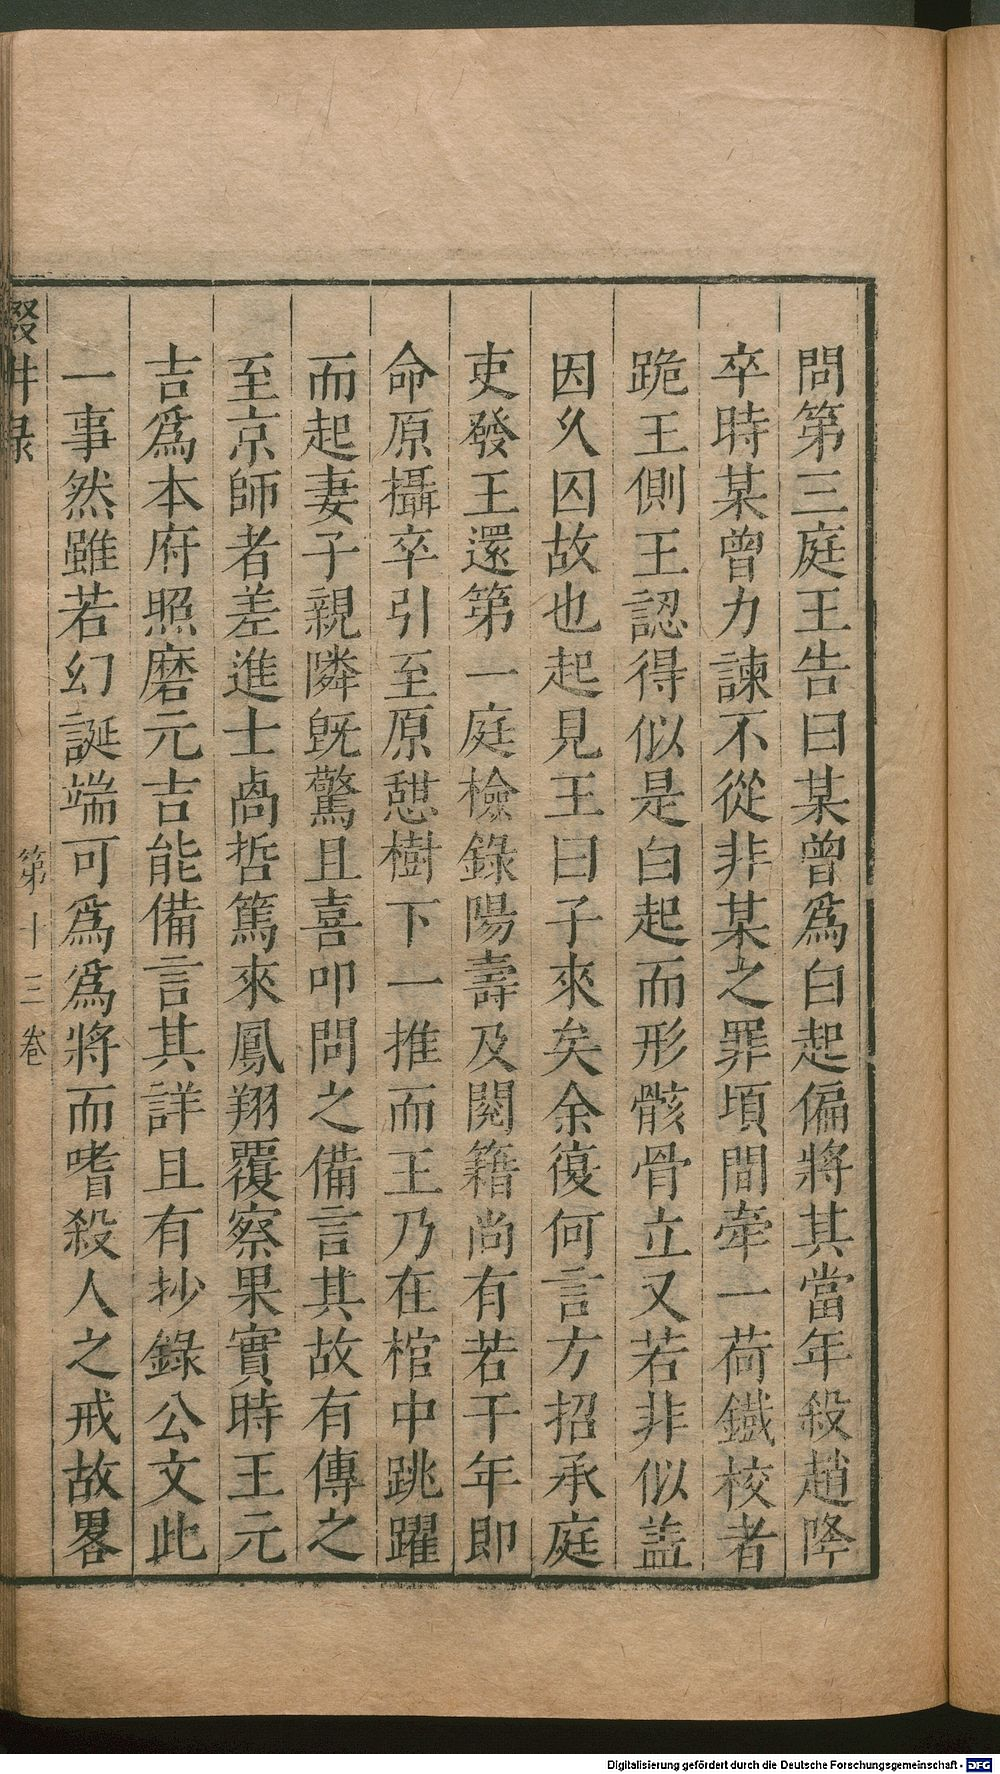 問第三庭王告曰某曾爲白起偏將其當年殺趙降
卒時某曾力諫不從非某之罪頃間牽一荷鐵校者
跪王側王認得似是白起而形骸骨立又若非似盖
因久囚故也起見王曰子來矣余復何言方招承庭
吏發王還第一庭檢錄陽壽及閱籍尚有若干年即
命原攝卒引至原憇樹下一推而王乃在棺中跳躍
而起妻子親隣旣驚且喜叩問之備言其故有傳之
至京師者差進士卨哲篤來鳳翔覆察果實時王元
吉爲本府照磨元吉能備言其詳且有抄錄公文此
一事然雖若幻誕端可爲爲將而嗜殺人之戒故畧
第十三卷
Digitalisierung gefördert durch die Deutsche Forschungsgemeinschaft - DFG